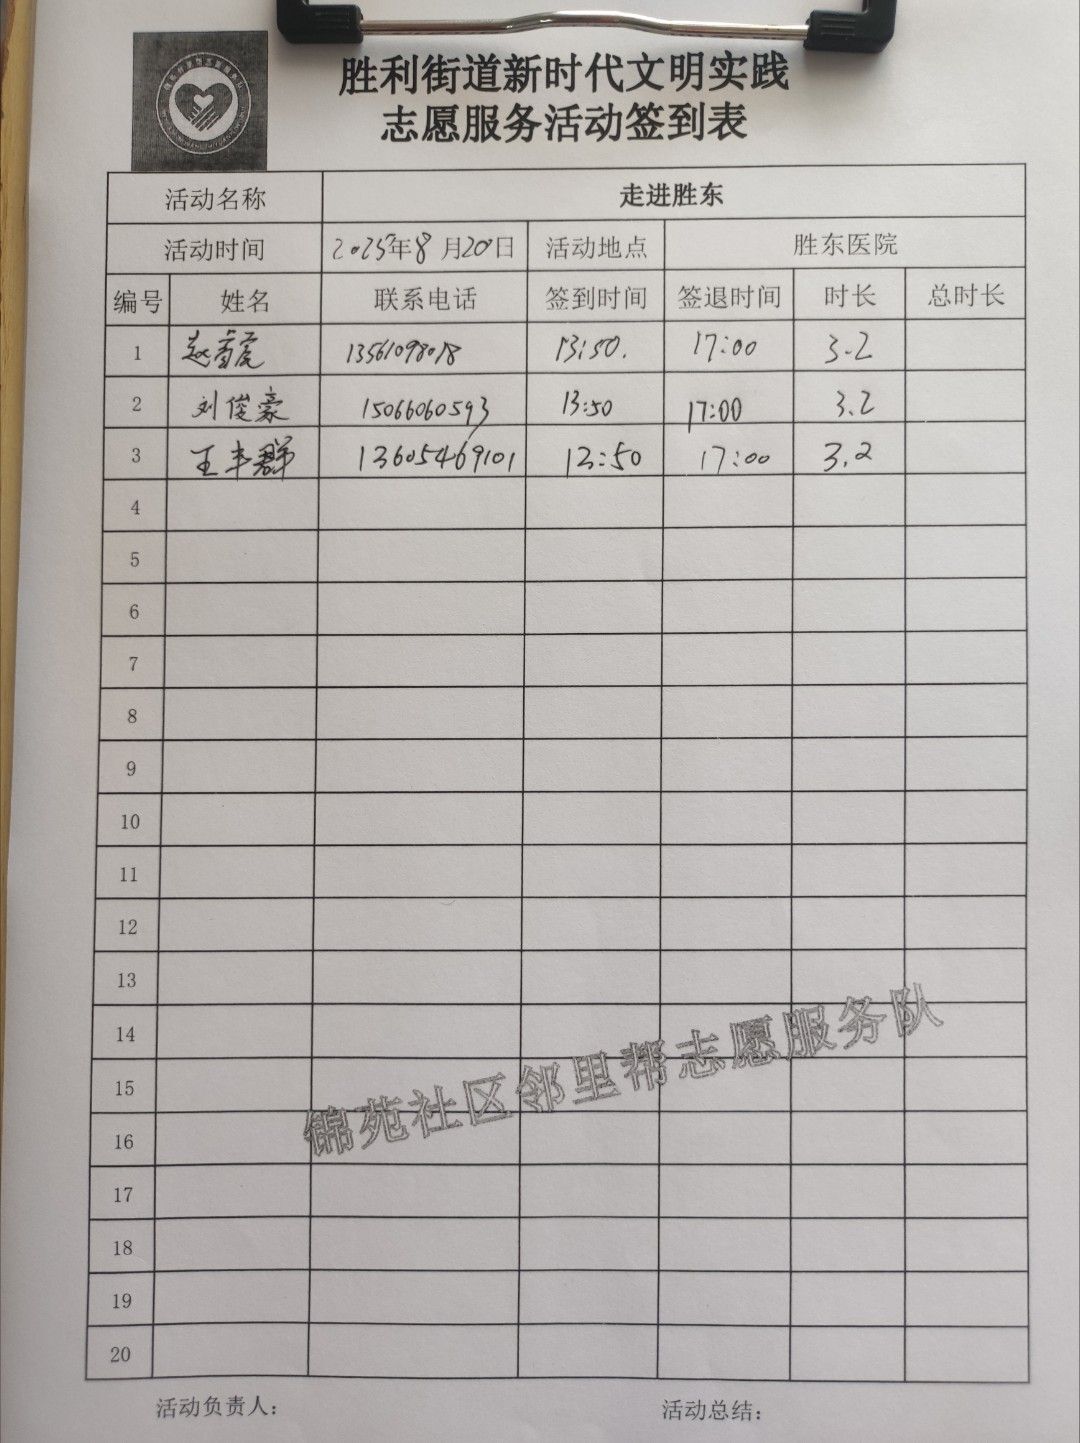 胜利街道新时代文明实践
志愿服务活动签到表
活动名称 走进胜东
活动时间 2025年8月20日 活动地点 胜东医院
编号 姓名 联系电话 签到时间 签退时间 时长 总时长
1 赵 13561098018 13:50. 17:00 3.2
2 刘俊豪 15066060593 13:50 17:00 3.2
3 王丰群 13605469101 13:50 17:00 3.2
4
5
6
7
8
9
10
11
12
13
14
15
16
17
18
19
20
锦苑社区邻里帮志愿服务队
活动负责人： 活动总结：